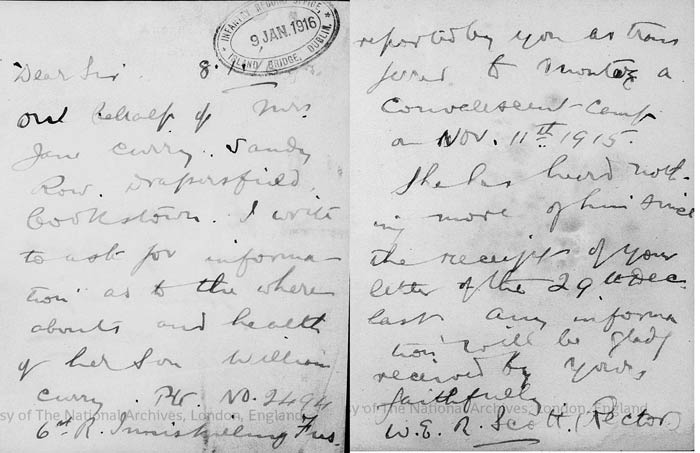 INFANTRY RECORD OFFICE,
9 JAN. 1916
ISLAND BRIDGE, DUBLIN.
Dear Sir 8.1
on behalf of Mrs
Jane Curry. Sandy
Row. Drapersfield,
Cookstown. I write
to ask for informa
tion as to the where
abouts and health
of her Son William
Curry. Pte. No. 2494
6th R. Inniskilling Fus.
reported by you as trans
ferred to a
Convalescent Camp
on Nov. 11th 1915.
She has heard noth-
ing more of him since
the receipt of your
letter of the 29th Dec.
last any informa
tion will be gladly
received by Yours
faithfully
W. E. R. Scott. (Rector)
sy of The National Archives, London, England
sy of The National Archives, London, England